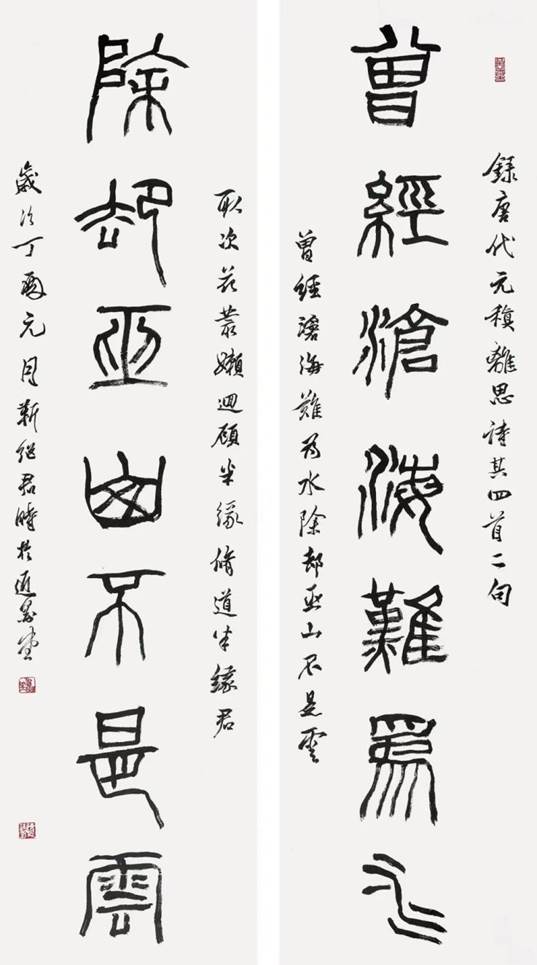 錄唐代元稹離思詩其四首二句
曾經滄海難為水
曾經滄海難為水除却巫山不是雲
取次花叢嬾迴顧半緣脩道半緣君
除却巫山不是雲
歲次丁酉元月靳继君時於